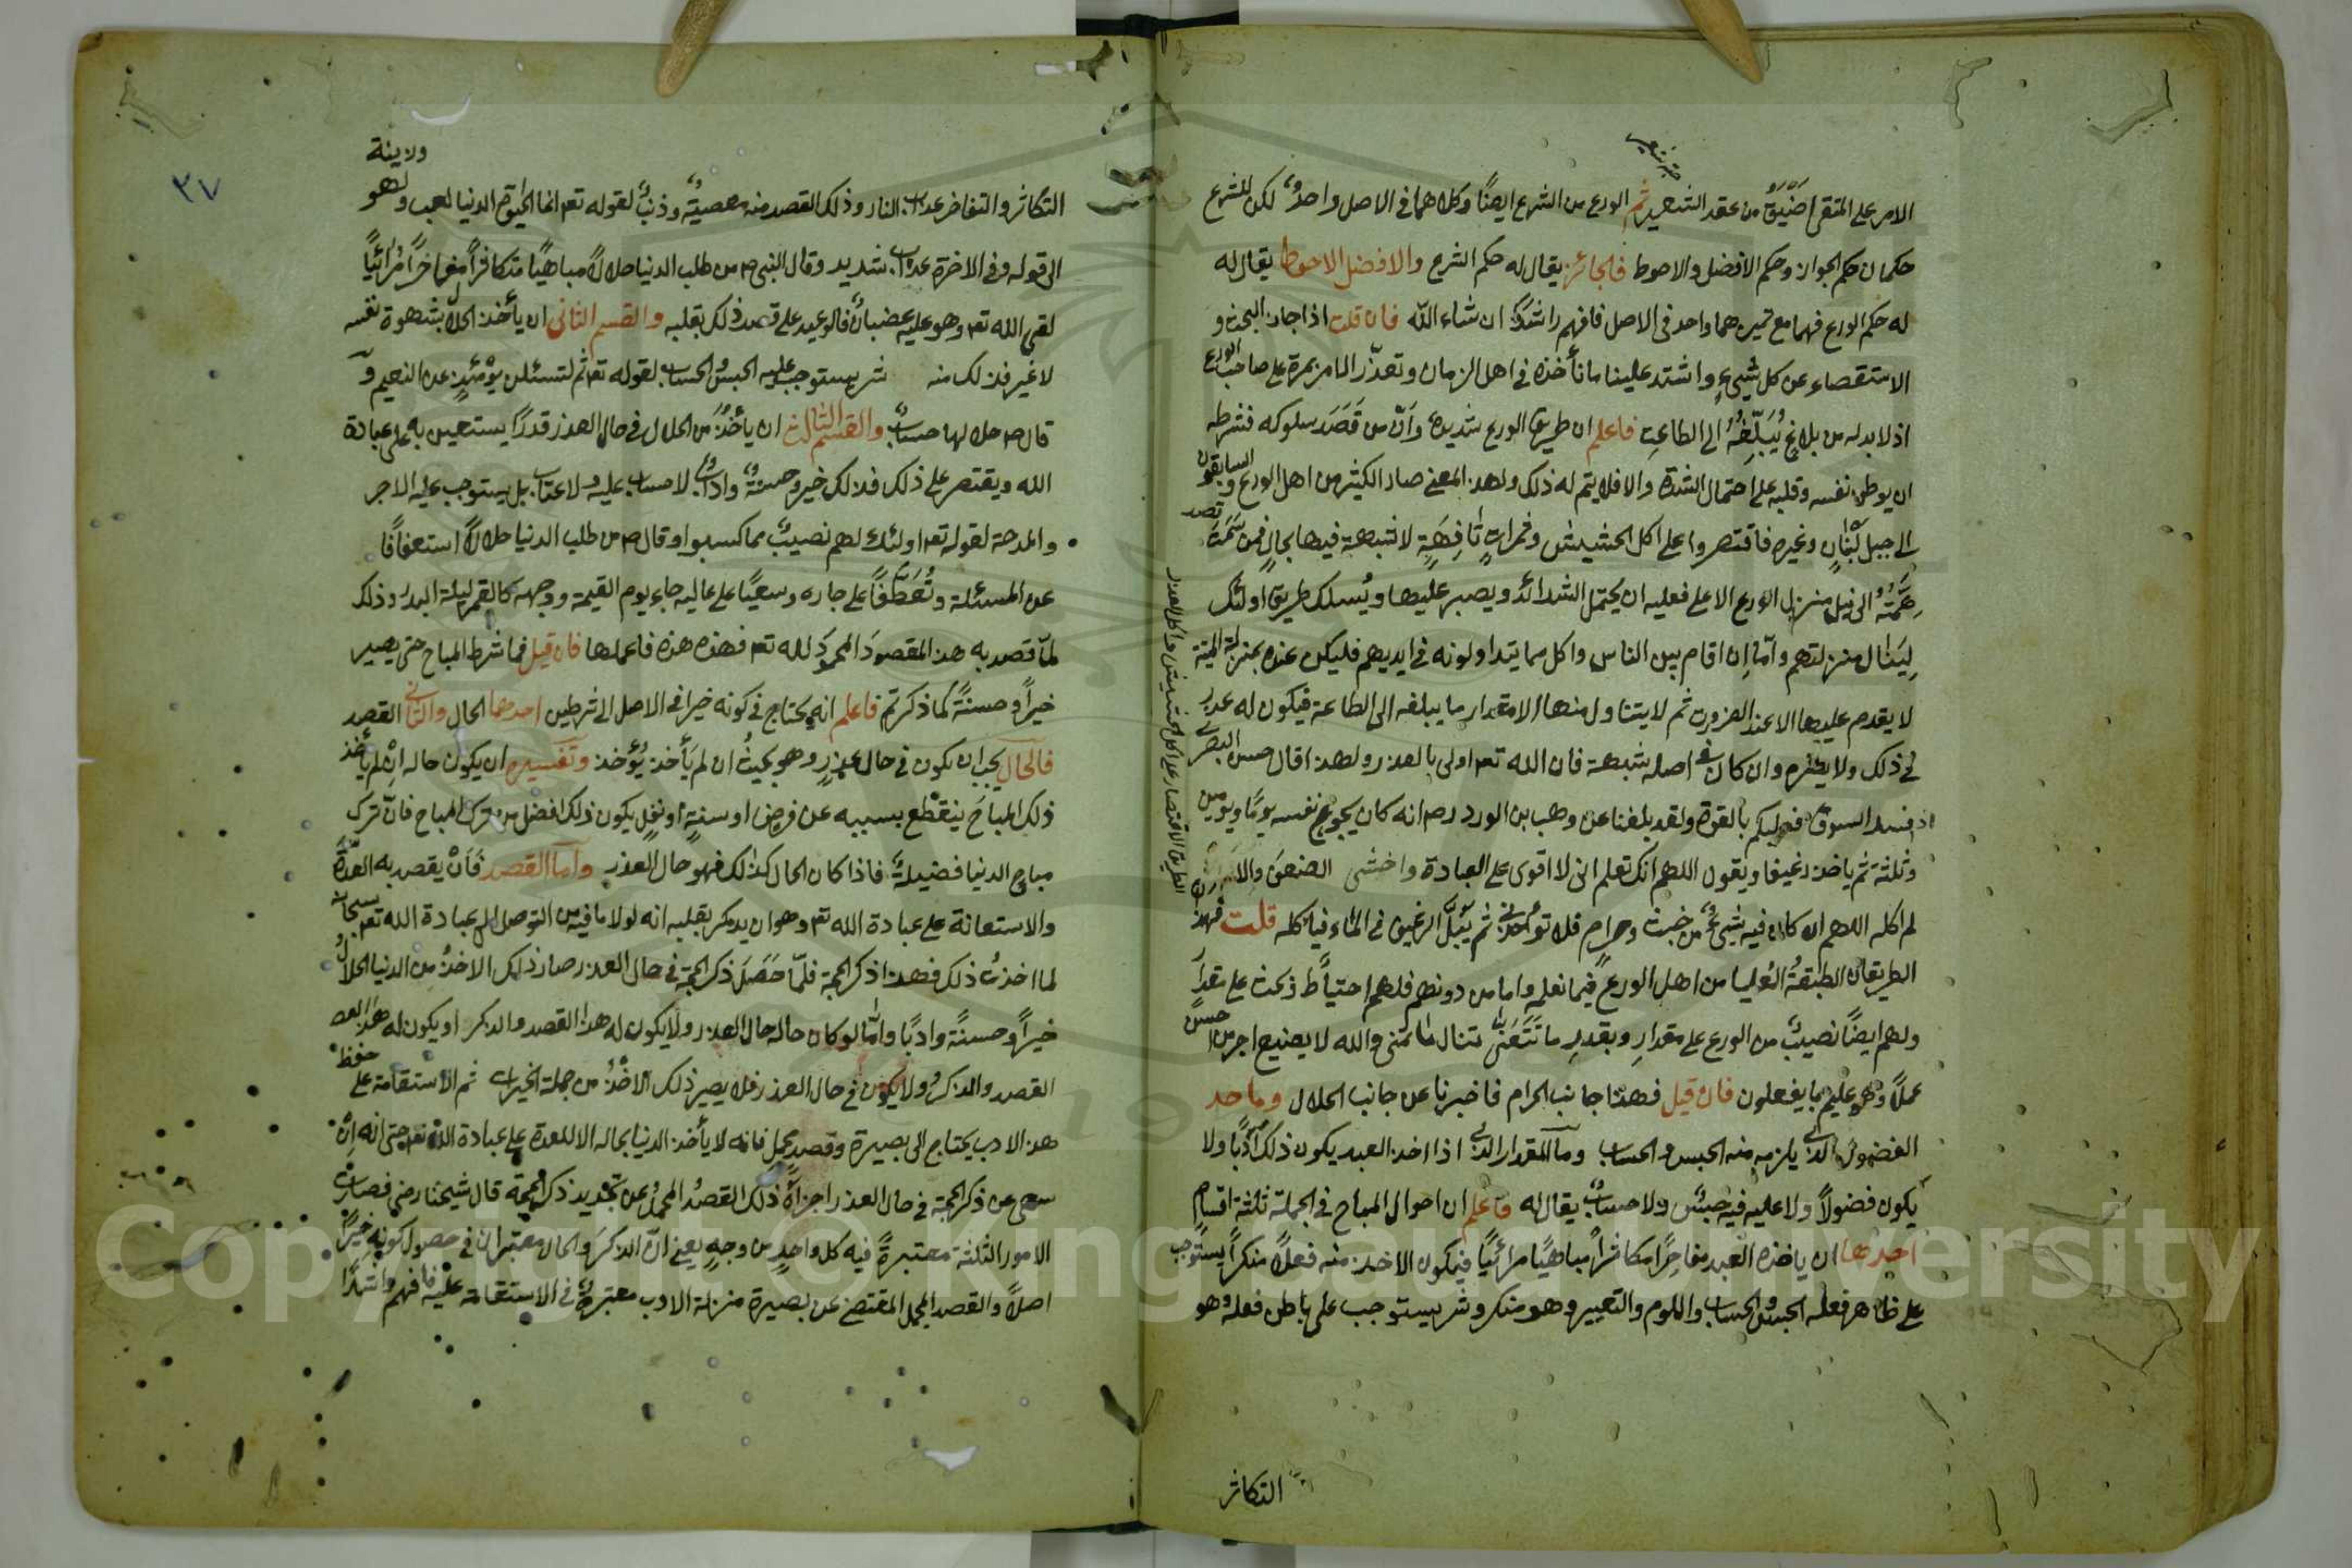 الامر على المتقى اضيق من عقد التسعين ثم الورع من الشرع ايضًا وكلاهما فى الاصل واحد لكن للشرع
حكمان حكم الجواز وحكم الافضل والاحوط فالجائز يقال له حكم الشرع والافضل الاحوط يقال له
له حكم الورع فهما مع تميزهما واحد فى الاصل فافهم راشدًا ان شاء الله فان قلت اذا جاز البحث و
الاستقصاء عن كل شيء واشتد علينا ما نأخذه فى اهل الزمان وتعذّر الامر بمرة على صاحب الورع
اذ لا بد له من بلاغ يُبَلِّغُهُ الى الطاعة فاعلم ان طريق الورع شديدة وأنّ من قَصَدَ سلوكه فشرطه
ان يوطن نفسه وقلبه على احتمال الشدة والا فلا يتم له ذلك ولهذا المعنى صار الكثير من اهل الورع السابقون
الى جبل لُبْنَانٍ وغيره فاقتصروا على اكل الحشيش وثمراتٍ تَافِهَةٍ لا شبهة فيها بحالٍ فمن سَمَتْ
هِمَّتُهُ الى نيل منزل الورع الاعلى فعليه ان يحتمل الشدائد ويصبر عليها ويُسلك طريق اولئك
لِيَنال منزلتهم وأمّا إن اقام بين الناس واكل مما يتداولونه فى ايديهم فليكن عنده بمنزلة الميتة
لا يقدم عليها الا عند الضرورة ثم لا يتناول منها الا مقدار ما يبلغه الى الطاعة فيكون له عذر
فى ذلك ولا يضره وان كان فى اصله شبهة فان الله تعـ اولى بالعذر ولهذا قال حسن البصرى
فسد السوق فعليكم بالقوة ولقد بلغنا عن وهب بن الورد رحـ انه كان يجوع نفسه يومًا ويومين
وثلثة ثم ياخذ رغيفا ويقول اللهم انك تعلم انى لا اقوى على العبادة واخشى الضعف والا
لم اكله اللهم ان كان فيه شيءٌ من خبث وحرام فلا تؤاخذنى ثم يَبُلّ الرغيف فى الماء فيأكله قلت فهذه
الطريقان الطبقةُ العُليا من اهل الورع فيما نعلم واما من دونهم فلهم احتياط ذ بحث على مقدار
ولهم ايضًا نصيبٌ من الورع على مقدارِ وبقدرِ ما تَتَعَنّى تنال ما تتمنى والله لا يضيع اجر من احسن
عملًا وهو عليم بما يفعلون فان قيل فهذا جانب الحرام فاخبرنا عن جانب الحلال وما حد
الفضول الذى يلزم منه الحبس والحساب وما المقدار الذى اذا اخذ العبد يكون ذلك أدبًا ولا
يكون فضولًا ولا عليه فيه حبس ولا حساب يقال له فاعلم ان احوال المباح فى الجملة ثلثة اقسامٍ
احدها ان ياخذه العبد مفاخِرًا مكاثرًا مباهيًا مرائيًا فيكون الاخذ منه فعلًا منكرًا يستوجب
على ظاهر فعله الحبس والحساب واللوم والتعيير وهو منكر وشر يستوجب على باطن فعله وهو
التكاثر
الطريق الاقتصار على اكل الحشيش واكل العذر
٣٧
التكاثر والتفاخر عذاب النار وذلك القصد منه معصيةٌ وذنبٌ لقوله تعـ انما الحيوة الدنيا لعب ولهو
وزينة
الى قوله وفى الاخرة عذاب شديد وقال النبى صـ من طلب الدنيا حلالًا مباهيًا مكاثرًا مفاخرًا مُرائيًا
لقى الله تعـ وهو عليه غضبان فالوعيد على قصد ذلك بقلبه والقسم الثانى ان يأخذ الحلال بشهوة نفسه
لا غير فذلك منه شر يستوجب عليه الحبس الحساب لقوله تعـ ثم لتسئلن يؤمئذٍ عن النعيم و
قال صـ حلالها حساب والقسم الثالث ان يأخُذَ من الحلال فى حال العذر قدرًا يستعين به على عبادة
الله ويقتصر على ذلك فذلك خير وحسنةٌ وادبٌ لا حساب عليه ولا عتاب بل يستوجب عليه الاجر
والمدحة لقوله تعـ اولئك لهم نصيب مما كسبوا وقال صـ من طلب الدنيا حلالًا استعفافًا
عن المسئلة وتَعَطُّفًا على جاره وسعيًا على عاليه جاء يوم القيمة ووجهه كالقمر ليلة البدر وذلك
لمّا قصد به هذا المقصودَ المحمودَ لله تعـ فهذه هذه فاعملها فان قيل فما شرط المباح حتى يصير
خيرًا وحسنةً كما ذكرتم فاعلم انه يحتاج فى كونه خيرا فى الاصل الى شرطين احدهما الحال والثانى القصد
فالحال يجب ان يكون فى حال عذرٍ وهو بحيثُ ان لم يَأخذ يُؤخذ وتفسيره ان يكون حاله ان لم يأخذ
ذلك المباحَ ينقطع بسببه عن فرضٍ او سنةٍ او نفلٍ يكون ذلك افضل من ترك المباح فانّ ترك
مباح الدنيا فضيلةٌ فاذا كان الحال كذلك فهو حال العذر وامّا القصد فأنْ يقصد به العدّة
والاستعانة على عبادة الله تعـ وهو ان يذكر بقلبه انه لولا ما فيه من التوصل الى عبادة الله تعـ سبحانه
لما اخذتُ ذلك فهذا ذكر الحجة فلمّا حَصَلَ ذكر الحجة فى حال العذر صار ذلك الاخذُ من الدنيا الحلالَ
خيرًا وحسنةً وادبًا وامّا لو كان حاله حال العذر ولا يكون له هذا القصد والذكر او يكون له هذا
القصد والذكر ولا يكون فى حال العذر فلا يصير ذلك الاخذُ من جملة الخيرات ثم الاستقامة على حفظ
هذا الادب يحتاج الى بصيرة وقصدٍ مجمل فانه لا يأخذ الدنيا بحاله الا للعدة على عبادة الله تعـ حتى انه إن
سهى عن ذكر الحجة فى حال العذر اجزأه ذلك القصدُ المجملُ عن تجديد ذكر الحجة قال شيخنا رضى فصارت
الامور الثلثة معتبرةً فيه كل واحدٍ من وجهٍ يعنى انّ الذكرَ والحال معتبران فى حصول كونه خيرًا
اصلًا والقصد المجمل المقتضى عن بصيرة منزلة الادب معتبرةٌ فى الاستقامة عليه فافهم راشدًا